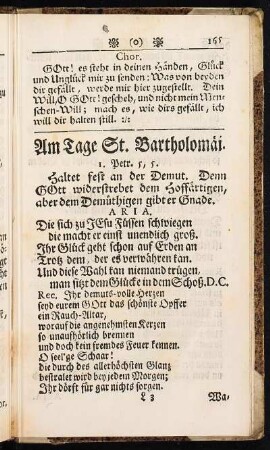 (o) 165
Chor.
GOtt! es steht in deinen Händen, Glück
und Unglück mir zu senden: Was von beyden
dir gefällt, werde mir hier zugestellt. Dein
Will, O GOtt! gescheh, und nicht mein Men-
schen-Will; mach es, wie dirs gefällt, ich
will dir halten still. :/:
Am Tage St. Bartholomäi.
1. Petr. 5, 5.
Haltet fest an der Demut. Denn
GOtt widerstrebet dem Hoffärtigen,
aber dem Demüthigen gibt er Gnade.
ARIA.
Die sich zu JEsu Füssen schwiegen
die macht er einst unendlich groß.
Ihr Glück geht schon auf Erden an
Trotz dem, der es verwähren kan.
Und diese Wahl kan niemand trügen,
man sitzt dem Glücke in dem Schoß. D.C.
Rec. Ihr demuts-volle Hertzen
seyd eurem GOtt das schönste Opffer
ein Rauch-Altar,
worauf die angenehmsten Kertzen
so unaufhörlich brennen
und doch kein fremdes Feuer kennen.
O seel'ge Schaar!
die durch des allerhöchsten Glantz
bestralet wird bey jedem Morgen;
Ihr dörft für gar nichts sorgen.
L 3 Wa-